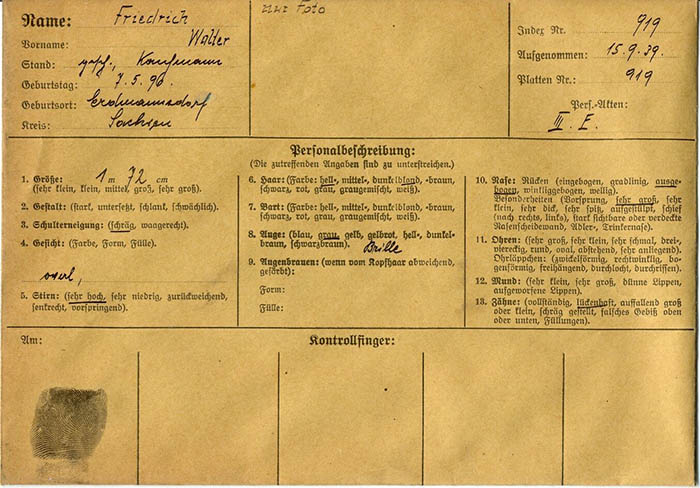 Name: Friedrich
Vorname: Walter
Stand: gesch., Kaufmann
Geburtstag: 7.5.96.
Geburtsort: Erdmannsdorf
Kreis: Sachsen
nur Foto
Index Nr. 919
Aufgenommen: 15.9.39.
Platten Nr.: 919
Pers.-Akten:
III. E.
Personalbeschreibung:
(Die zutreffenden Angaben sind zu unterstreichen.)
1. Größe: 1 m 72 cm
(sehr klein, klein, mittel, groß, sehr groß).
2. Gestalt: (stark, untersetzt, schlank, schwächlich).
3. Schulterneigung: (schräg, waagerecht).
4. Gesicht: (Farbe, Form, Fülle).
oval,
5. Stirn: (sehr hoch, sehr niedrig, zurückweichend,
senkrecht, vorspringend).
6. Haar: (Farbe: hell-, mittel-, dunkelblond, -braun,
schwarz, rot, grau, graugemischt, weiß).
7. Bart: (Farbe: hell-, mittel-, dunkelblond, -braun,
schwarz, rot, grau, graugemischt, weiß).
8. Auge: (blau, grau, gelb, gelbrot, hell-, dunkel-
braun, schwarzbraun). Brille
9. Augenbrauen: (wenn vom Kopfhaar abweichend,
gefärbt):
Form:
Fülle:
10. Nase: Rücken (eingebogen, gradlinig, ausge-
bogen, winkliggebogen, wellig).
Besonderheiten (Vorsprung, sehr groß, sehr
klein, sehr dick, sehr spitz, aufgestülpt, schief
(nach rechts, links), stark sichtbare oder verdeckte
Nasenscheidewand, Adler-, Trinkernase).
11. Ohren: (sehr groß, sehr klein, sehr schmal, drei-
viereckig, rund, oval, abstehend, sehr anliegend).
Ohrläppchen: (zwickelförmig, rechtwinklig, bo-
genförmig, freihängend, durchlocht, durchrissen).
12. Mund: (sehr klein, sehr groß, dünne Lippen,
aufgeworfene Lippen).
13. Zähne: (vollständig, lückenhaft, auffallend groß
oder klein, schräg gestellt, falsches Gebiß oben
oder unten, Füllungen).
Am:
Kontrollfinger: